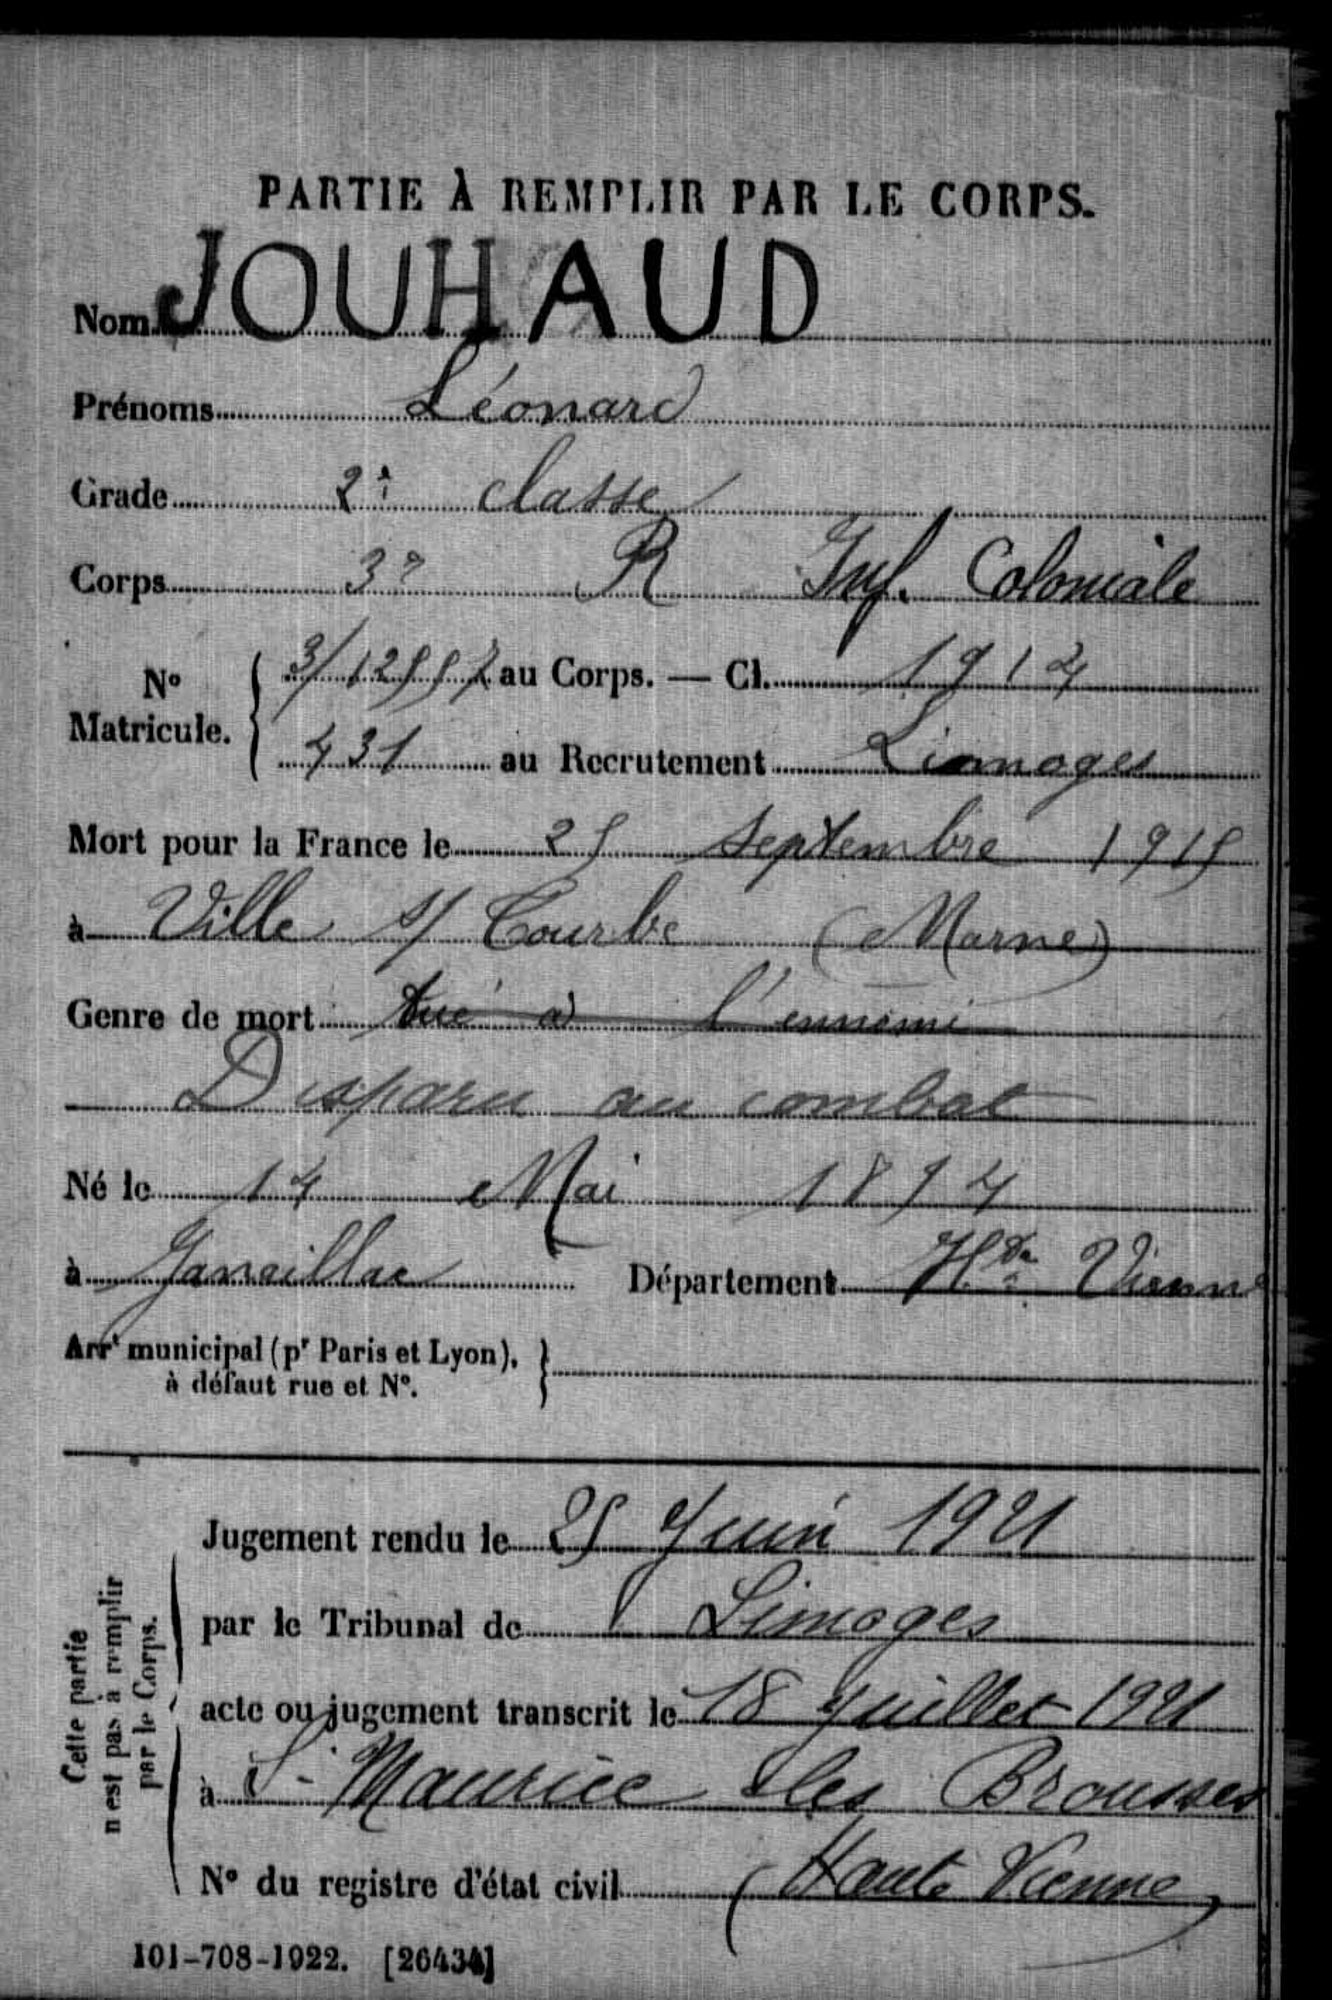 PARTIE À REMPLIR PAR LE CORPS.
Nom JOUHAUD
Prénoms Léonard
Grade 2e classe
Corps 3e R Inf. Coloniale
No Matricule. 3/12557 au Corps. — Cl. 1914
431 au Recrutement Limoges
Mort pour la France le 25 septembre 1915
à Ville s/ Tourbe (Marne)
Genre de mort tué à l'ennemi
Disparu au combat
Né le 14 Mai 1894
à Janailhac Département Hte Vienne
Arrt municipal (pr Paris et Lyon), à défaut rue et No.
Cette partie n'est pas à remplir par le Corps.
Jugement rendu le 25 Juin 1921
par le Tribunal de Limoges
acte ou jugement transcrit le 18 Juillet 1921
à St Maurice les Brousses
No du registre d'état civil (Haute Vienne)
101-708-1922. [26434]